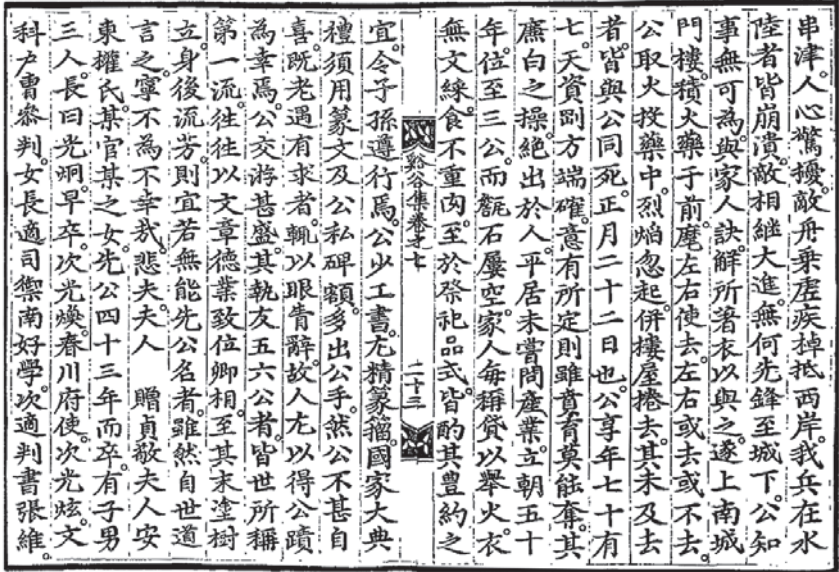 串津。人心驚擾。敵舟乗虛疾掉抵西岸。我兵在水
陸者皆崩潰。敵相継大進。無何先鋒至城下。公知
事無可為。與家人訣。觧所著衣以與之。遂上南城
門樓。積火藥于前。麾左右使去。左右或去或不去。
公取火投藥中。烈焰忽起。併樓屋捲去。其未及去
者。皆與公同死。正月二十二日也。公享年七十有
七。天資剛方端確。意有所定則雖賁育莫能奪。其
廉白之操。絶出於人。平居未嘗問産業。立朝五十
年。位至三公。而甔石屢空。家人每稱貸以舉火。衣
無文綵。食不重肉。至於祭祀品式。皆酌其豊約之
谿谷集卷之七 二十三
宜。令子孫遵行焉。公少工書。尤精篆籀。國家大典
禮須用篆文及公私碑額。多出公手。然公不甚自
喜。旣老遇有求者。輒以眼眚辭。故人尤以得公蹟
為幸焉。公交游甚盛。其執友五六公者。皆世所稱
第一流。徃徃以文章德業致位卿相。至其末塗樹
立。身後流芳。則宜若無能先公名者。雖然自世道
言之。寧不為不幸哉。悲夫。夫人 贈貞敬夫人安
東權氏。某官某之女。先公四十三年而卒。有子男
三人。長曰光炯。早卒。次光煥。春川府使。次光炫。文
科戶曹叅判。女長適司禦南好學。次適判書張維。